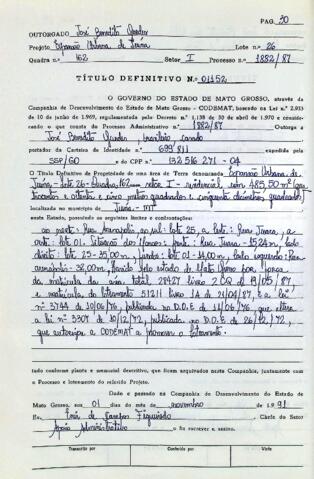 PAG. 30
OUTORGADO José Benedito
Projeto Expansão Urbana de Juína Lote n.º 26
Quadra n.º 162 Setor I Processo n.º 1882/87
TÍTULO DEFINITIVO N.º 01152
O GOVERNO DO ESTADO DE MATO GROSSO, através da
Companhia de Desenvolvimento do Estado de Mato Grosso - CODEMAT, baseado na Lei n.º 2.933
de 10 de junho de 1.969, regulamentada pelo Decreto n.º 1.138 de 30 de abril de 1.970 e considerando
o que consta do Processo Administrativo n.º 1882/87 Outorga a
José Benedito , brasileiro, casado
portador da Carteira de Identidade n.º 699811 expedida pela
SSP/GO e do CPF n.º 132 516 271 - 04
O Título Definitivo de Propriedade de uma área de Terra denominada Expansão Urbana de
Juína - lote 26 - Quadra 162 setor I - residencial com 485,50 m²
centos e oitenta e cinco metros quadrados e cinquenta decímetros quadrados
localizada no município de Juína - MT
neste Estado, possuindo os seguintes limites e confrontações:
ao norte: Rua ao sul: lote 25, a leste: Rua Juína, a
oeste: lote 01. frente: Rua Juína - 15,24 m, lado
direito: lote 25 - 35,00 m, fundos: lote 01 - 14,00 m, lado esquerdo: Rua
32,00 m, pelo estado de Mato Grosso por força
da matrícula da área total 28427 livro 2 CQ 87
e matrícula do loteamento 51211 livro 1A de 21/04/87, e a lei
nº 3744 de 10/06/76, publicada no D.O.E de 11/06/76 que altera
a lei nº 3307 de 18/12/72, publicada no D.O.E de 26/12/72,
que autoriza a CODEMAT a promover o loteamento.
tudo conforme planta e memorial descritivo, que ficam arquivados nesta Companhia, juntamente com
o Processo e loteamento do referido Projeto.
Dado e passado na Companhia de Desenvolvimento do Estado de
Mato Grosso, aos 01 dias do mês de novembro de 1.991
Eu, de Campos Figueiredo Chefe do Setor
Apoio Administrativo o fiz escrever e assino.
Transcrito por Conferido por Visto